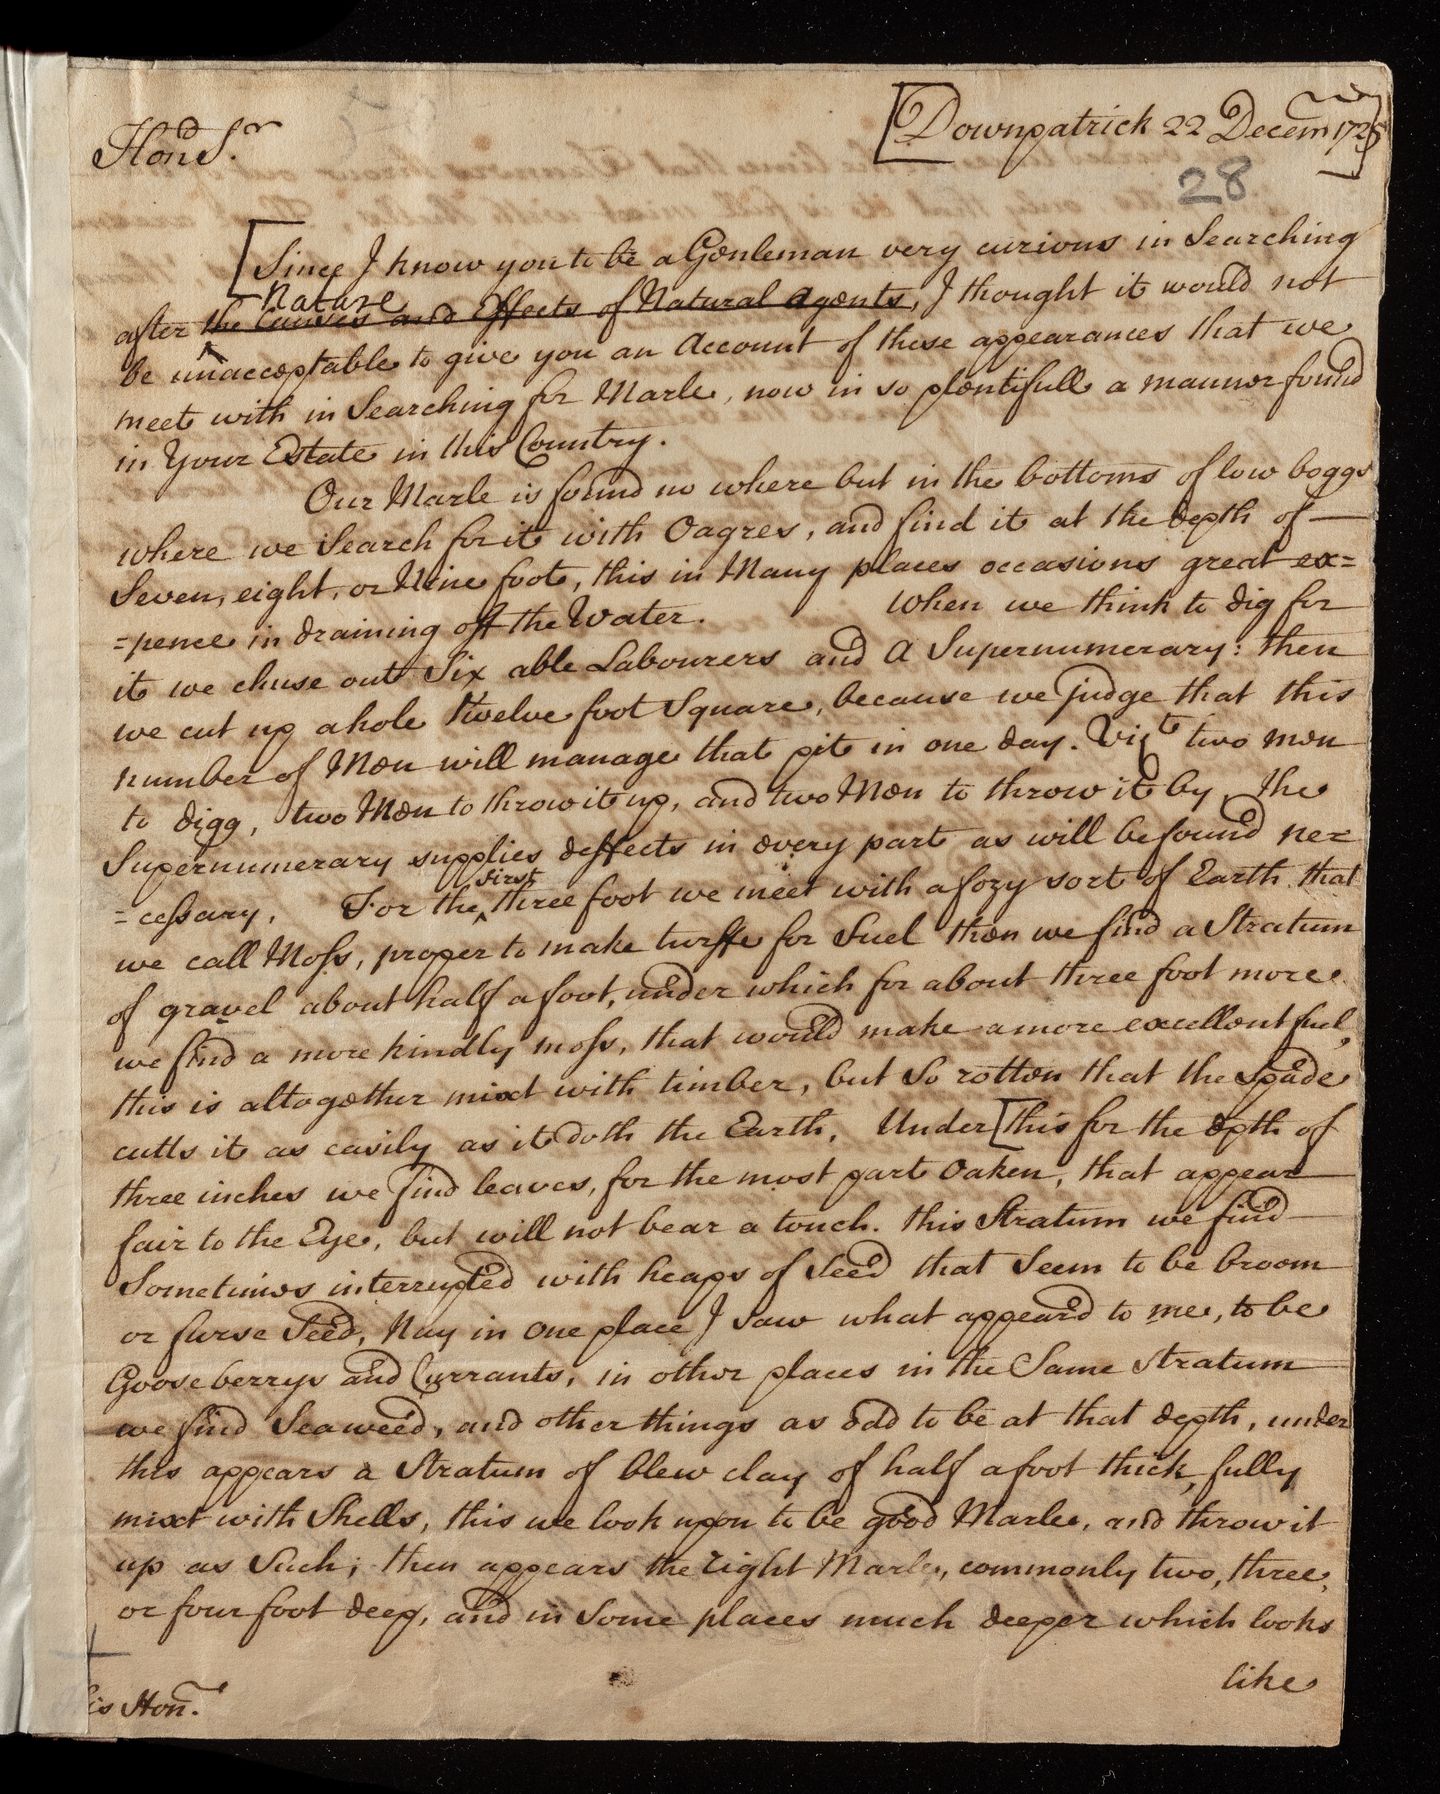 [Downpatrick 22 Decemr 1725]
Hond Sr.
28
[Since I know you to be a Genleman very curious in Searching
Nature
after the Causes and Effects of Natural Agents, I thought it would not
be unacceptable to give you an Account of those appearances that we
meet with in Searching for Marle, now in so plentifull a manner found
in Your Estate in this Country.
Our Marle is found no where but in the bottoms of low boggs
where we Search for it with Oagres, and find it at the depth of
Seven, eight, or Nine foot, this in Many places occasions great ex=
=pence in draining off the Water. When we think to dig for
it we chuse out Six able Labourers and a Supernumerary: then
we cut up a hole twelve foot Square, because we judge that this
number of Men will manage that pit in one day. Vizt two men
to digg, two Men to throw it up, and two Men to throw it by, the
Supernumerary supplies deffects in every part as will be found ne=
first
=cessary. For the ^ three foot we meet with a fozy sort of Earth that
we call Moss, proper to make turffe for fuel then we find a Stratum
of gravel about half a foot, under which for about three foot more
we find a more kindly moss, that would make a more excellent fuel,
this is altogether mixt with timber, but So rotten that the Spade
cutts it as easily as it doth the Earth. Under [this for the depth of
three inches we find leaves, for the most part Oaken, that appear
fair to the Eye, but will not bear a touch. this Stratum we find
Sometimes interrupted with heaps of Seed that Seem to be broom
or furse Seed, Nay in one place I saw what appeard to me, to be
Gooseberrys and Currants, in other places in the Same Stratum
we find Seaweed, and other things as odd to be at that depth, under
this appears a Stratum of blew clay of half a foot thick, fully
mixt with Shells, this we look upon to be good Marle, and throw it
up as Such; then appears the right Marle, commonly two, three,
or four foot deep, and in Some places much deeper which looks
like
is Honr.